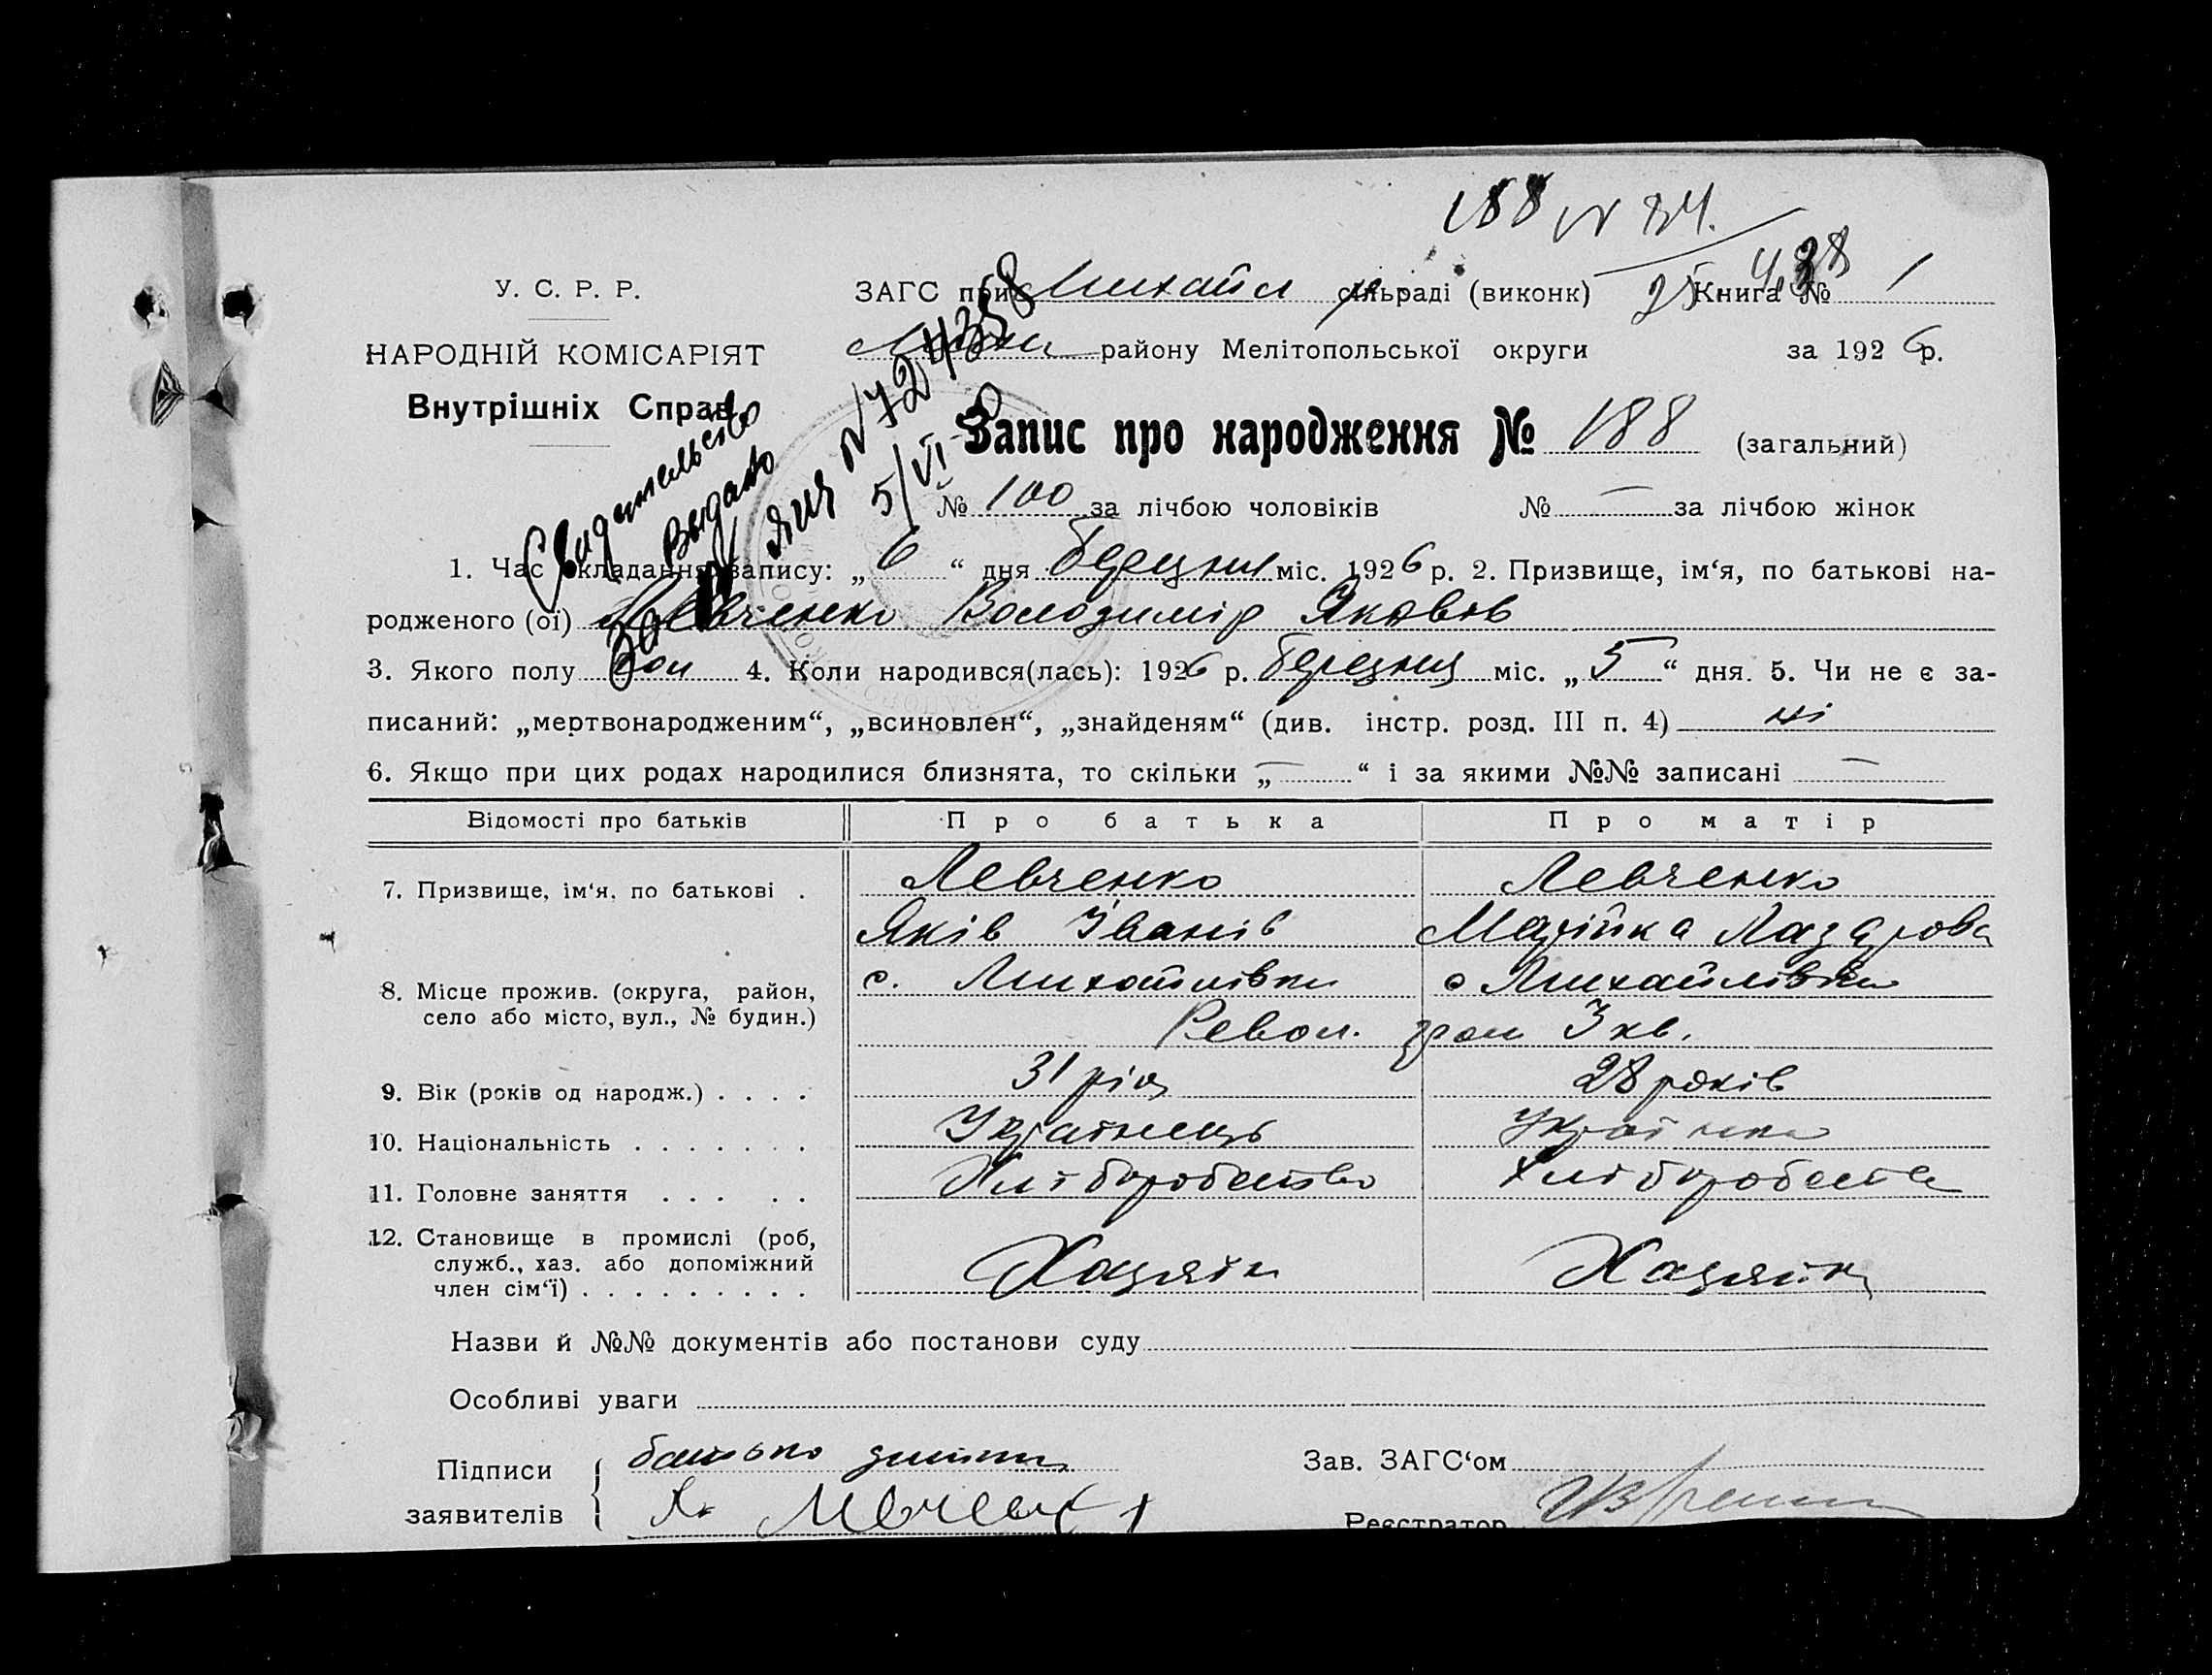 188 N 84.
438
25
У. С. Р. Р.
ЗАГС при Михайл сільраді (виконк) Книга № 1
НАРОДНІЙ КОМІСАРІЯТ
району Мелітопольської округи за 1926 р.
Внутрішніх Справ
Свидетельство
Выдано
за № ЯИЯ N 724358
5/VI
Запис про народження № 188 (загальний)
№ 100 за лічбою чоловіків № — за лічбою жінок
1. Час складання запису: „6“ дня березня міс. 1926 р. 2. Призвище, ім‘я, по батькові на-
родженого (ої) Левченко Володимір Яковов
3. Якого полу чол 4. Коли народився(лась): 1926 р. березня міс. „5“ дня. 5. Чи не є за-
писаний: „мертвонародженим“, „всиновлен“, „знайденям“ (див. інстр. розд. III п. 4) ні
6. Якщо при цих родах народилися близнята, то скільки „—“ і за якими №№ записані —
Відомості про батьків Про батька Про матір
7. Призвище, ім‘я, по батькові . Левченко Левченко
Яків Іванів Марійка Лазарова
8. Місце прожив. (округа, район, с. Михайлівка с Михайлівка
село або місто, вул., № будин.) Револ. гром 3 кв.
9. Вік (років од народж.) . . . . 31 рік 28 років
10. Національність . . . . . . . Українець Українка
11. Головне заняття . . . . . Хліборобство Хліборобство
12. Становище в промислі (роб,
служб., хаз. або допоміжний Хазяїн Хазяйка
член сім‘ї) . . . . . . . . .
Назви й №№ документів або постанови суду
Особливі уваги
Підписи батько дитини Зав. ЗАГС‘ом
заявителів Реєстратор